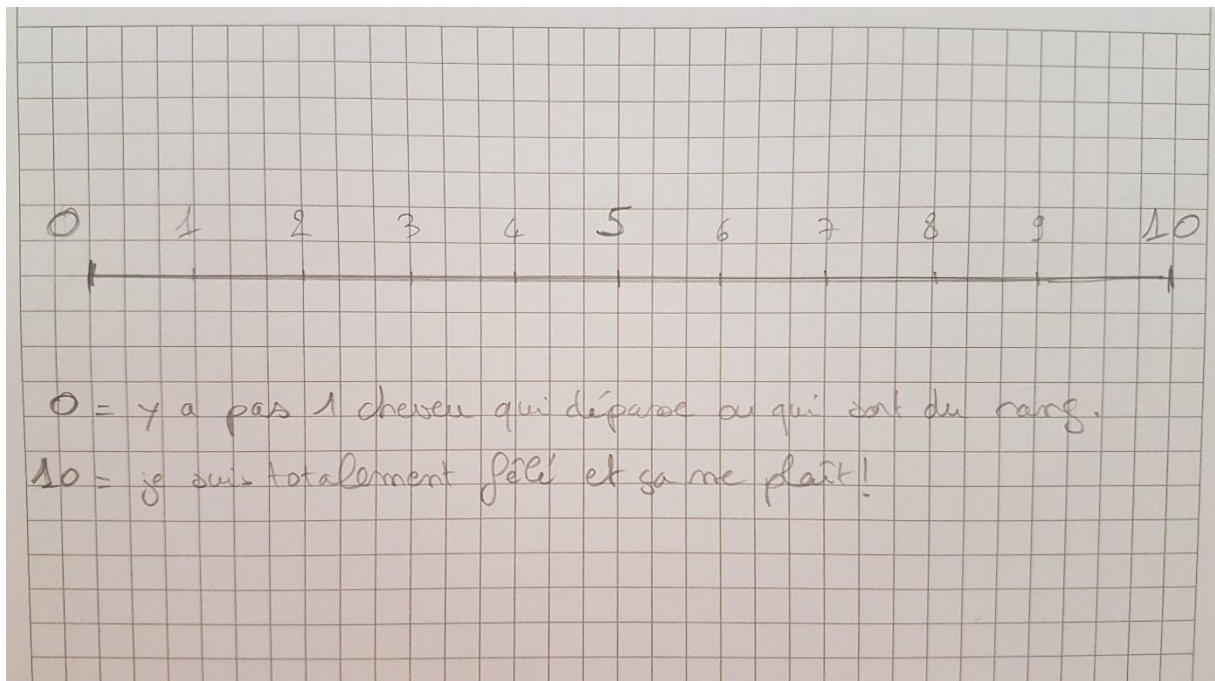 0 1 2 3 4 5 6 7 8 9 10
0 = y a pas 1 cheveu qui dépasse ou qui sort du rang.
10 = je suis totalement fêlé et ça me plaît!